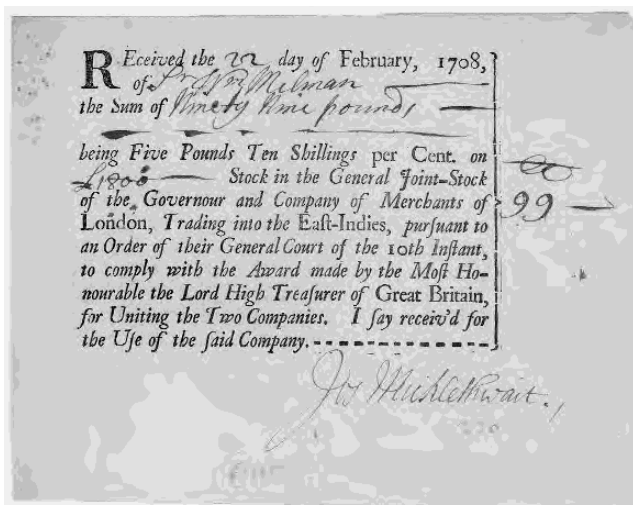 REceived the 22 day of February, 1708,
of Sr Wm Milman
the Sum of Ninety Nine pounds
being Five Pounds Ten Shillings per Cent. on
£1800 Stock in the General Joint-Stock
of the Governour and Company of Merchants of
London, Trading into the East-Indies, pursuant to
an Order of their General Court of the 10th Instant,
to comply with the Award made by the Most Ho-
nourable the Lord High Treasurer of Great Britain,
for Uniting the Two Companies. I say receiv'd for
the Use of the said Company.
99
Jos Micklethwait.